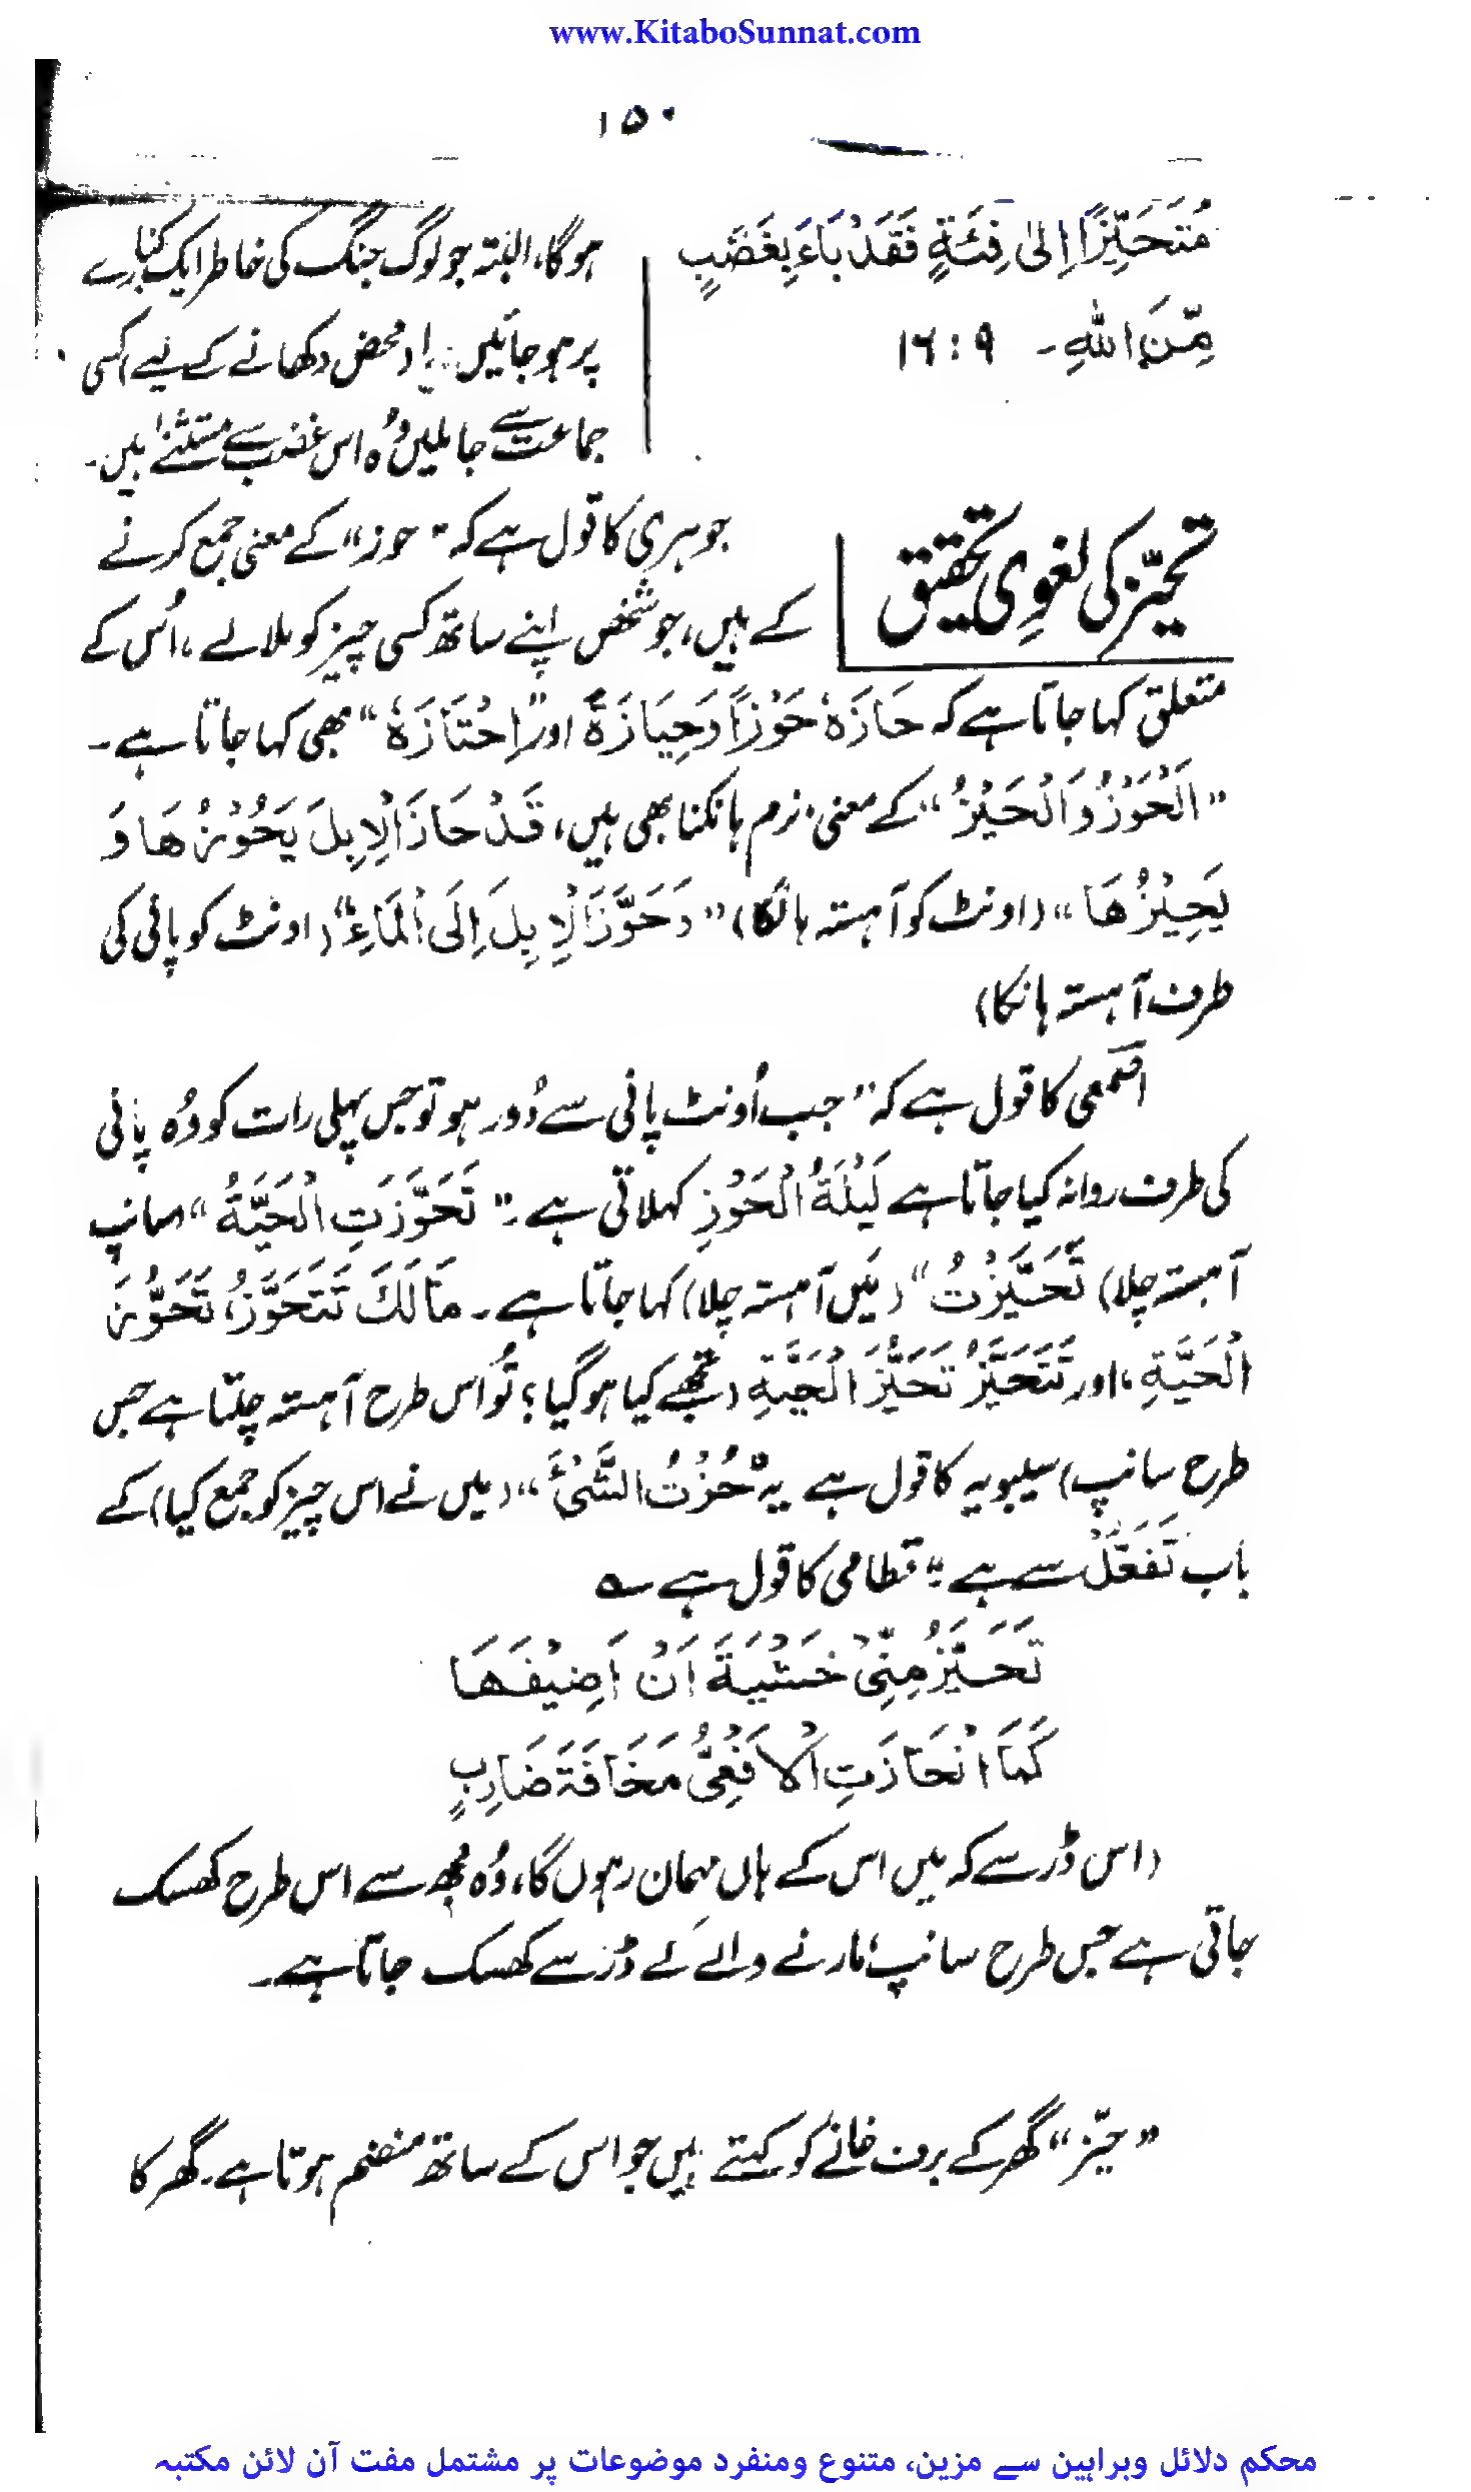 www.KitaboSunnat.com
۱۵۰
مُتَحَيِّزًا اِلىٰ فِئَةٍ فَقَدْ بَاءَ بِغَضَبٍ
مِّنَ اللهِ۔ ۹ : ۱۶
ہوگا، البتہ جو لوگ جنگ کی خاطر ایک کنارے
پر ہو جائیں یا محض دکھانے کے لیے اکسی
جماعت سے جا ملیں وُہ اس غضب سے مستثنےٰ ہیں۔
تحیّز کی لغوِی تحقیق
جوہری کا قول ہے کہ "حوز" کے معنی جمع کرنے
کے ہیں، جو شخص اپنے ساتھ کسی چیز کو ملا لے، اُس کے
متعلق کہا جاتا ہے کہ حَازَہٗ حَوْزًا وَحِیَازَۃً اور "اِحْتَازَہٗ" بھی کہا جاتا ہے۔
"اَلْحَوْزُ وَالْحَیْزُ" کے معنی نرم ہانکنا بھی ہیں، قَدْ حَازَ الْاِبِلَ یَحُوْزُھَا وَ
یَحِیْزُھَا" (اونٹ کو آہستہ ہانکا) "وَحَوَّزَ الْاِبِلَ اِلَی الْمَاءِ" (اونٹ کو پانی کی
طرف آہستہ ہانکا)
اصمعی کا قول ہے کہ "جب اُونٹ پانی سے دُور ہو تو جس پہلی رات کو وُہ پانی
کی طرف روانہ کیا جاتا ہے لَیْلَۃُ الْحَوْزِ کہلاتی ہے۔" تَحَوَّزَتِ الْحَیَّۃُ" سانپ
آہستہ چلا) تَحَیَّزْتُ" (مَیں آہستہ چلا) کہا جاتا ہے۔ مَا لَکَ تَتَحَوَّزُ، تَحَوُّزَ
الْحَیَّۃِ، اور تَتَحَیَّزُ تَحَیُّزَ الْحَیَّۃِ (تجھے کیا ہو گیا؟ تُو اس طرح آہستہ چلتا ہے جس
طرح سانپ) سیبویہ کا قول ہے یہ "حُزْتُ الشَّیْءَ" (میں نے اس چیز کو جمع کیا) کے
باب تَفَعُّلْ سے ہے" قطامی کا قول ہے ؎
تَحَیَّزُ مِنِّیْ خَشْیَۃَ اَنْ اَضِیْفَھَا
کَمَا انْحَازَتِ الْاَفْعِیُّ مَخَافَۃَ ضَارِبٍ
(اس ڈر سے کہ میں اس کے ہاں مہمان رہوں گا، وُہ مجھ سے اس طرح کھسک
جاتی ہے جس طرح سانپ مارنے والے کے ڈر سے کھسک جاتا ہے۔
"حیّز" گھر کے برف خانے کو کہتے ہیں جو اس کے ساتھ منضم ہوتا ہے۔ گھر کا
محکم دلائل وبراہین سے مزین، متنوع ومنفرد موضوعات پر مشتمل مفت آن لائن مکتبہ